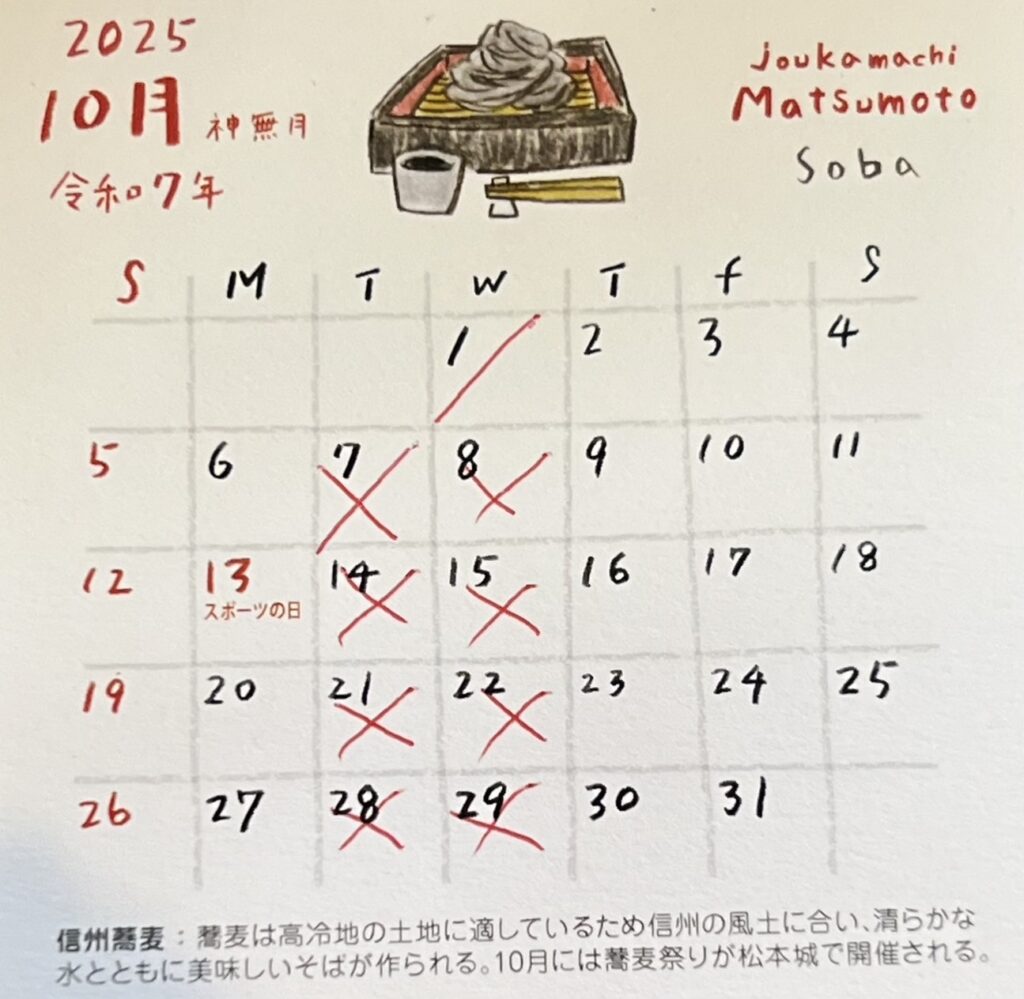 2025
10月 神無月
令和7年
Joukamachi
Matsumoto
Soba
S M T W T F S
1 2 3 4
5 6 7 8 9 10 11
12 13 14 15 16 17 18
スポーツの日
19 20 21 22 23 24 25
26 27 28 29 30 31
信州蕎麦：蕎麦は高冷地の土地に適しているため信州の風土に合い、清らかな
水とともに美味しいそばが作られる。10月には蕎麦祭りが松本城で開催される。